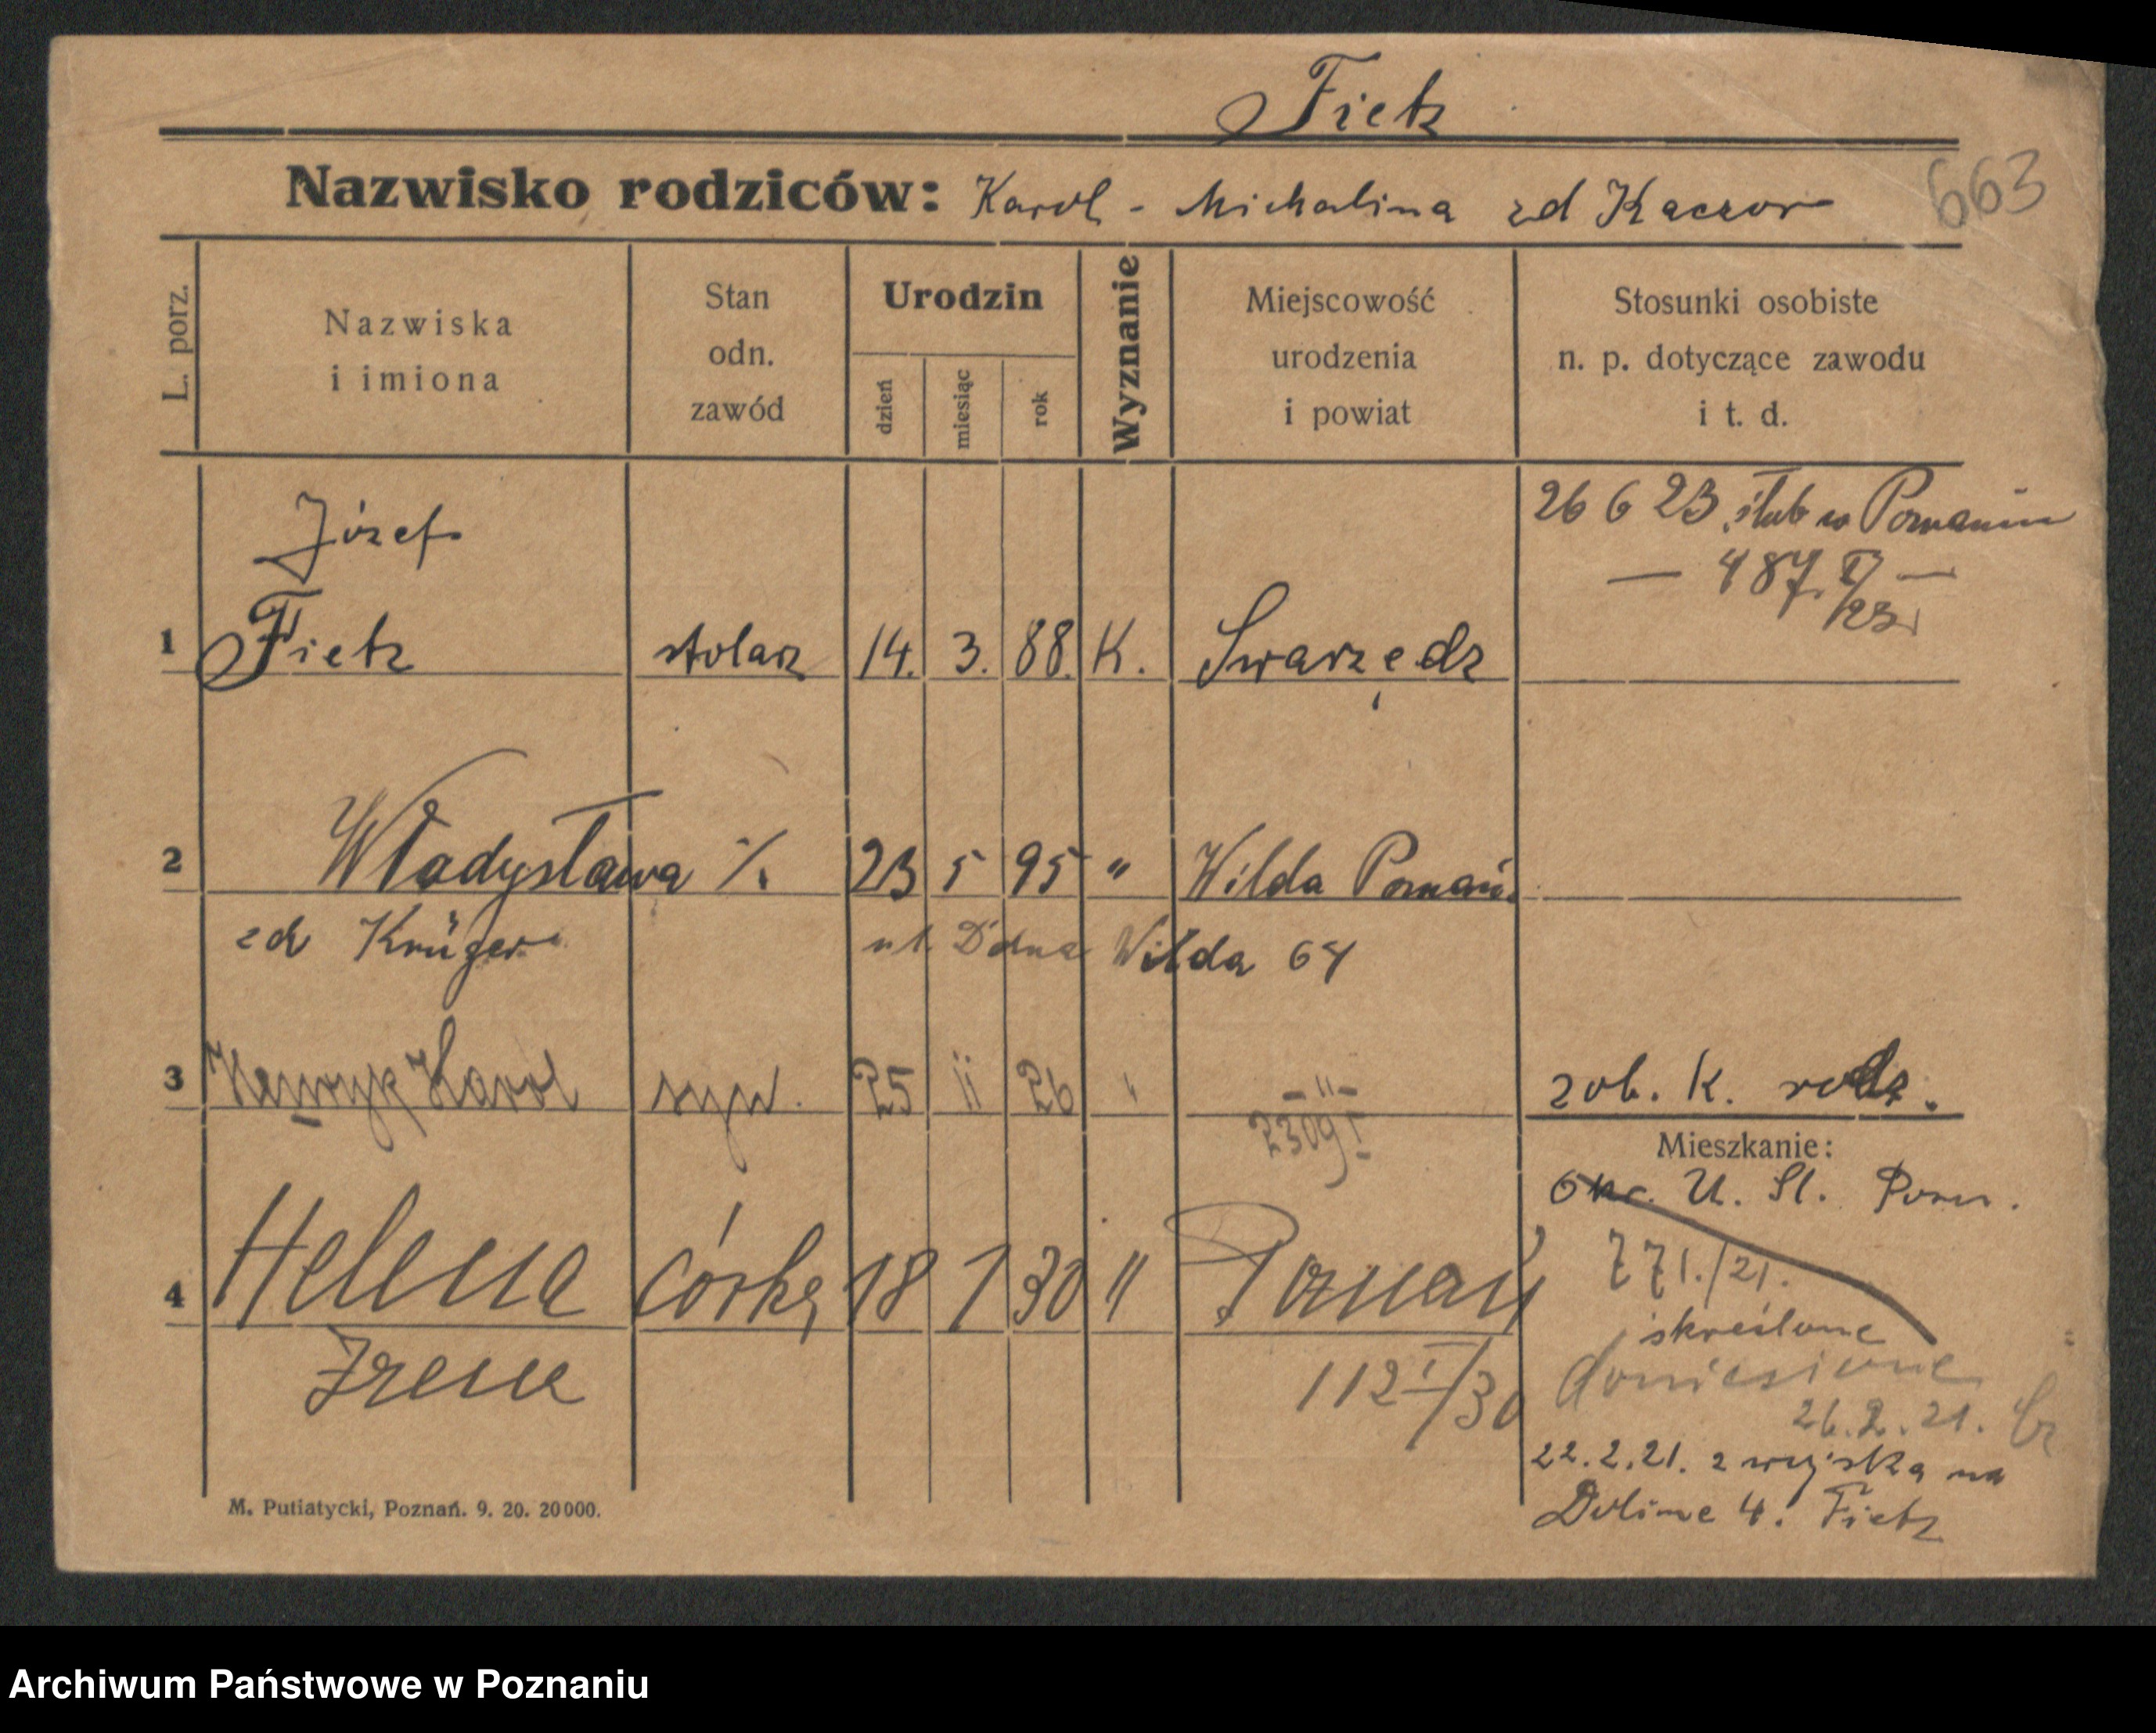 Fietz
Nazwisko rodziców: Karol - Michalina zd Kaczor
663
L. porz.
Nazwiska
i imiona
Stan
odn.
zawód
Urodzin
dzień
miesiąc
rok
Wyznanie
Miejscowość
urodzenia
i powiat
Stosunki osobiste
n. p. dotyczące zawodu
i t. d.
26 6 23 ślub w Poznaniu
— 487. /23 —
Józef
1 Fietz stolarz 14. 3. 88. K. Swarzędz
2 Władysława ·/. 23 5 95 " Wilda Poznań.
zd Krüger ul. Wilda 64
3 Henryk Karol syn. 25 11 26 " -"-
2309 I
zob. K. rodz.
Mieszkanie:
U. St. Pozn.
771./21.
skreślone
doniesione
26.2.21.
4 Helena córka 18 1 30 " Poznań
Irena
112 I/30
22.2.21. z wojska na
Dolinie 4. Fietz
M. Putiatycki, Poznań. 9. 20. 20000.
Archiwum Państwowe w Poznaniu